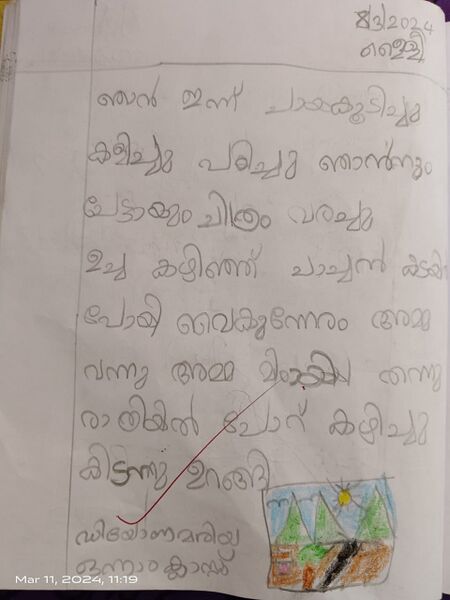 8/3/2024
വെള്ളി
ഞാൻ ഇന്ന് ചായകുടിച്ചു
കളിച്ചു പഠിച്ചു ഞാനും
ചേട്ടായും ചിത്രം വരച്ചു
ഉച്ച കഴിഞ്ഞ് ചാച്ചൻ കടയി
പോയി വൈകുന്നേരം അമ്മ
വന്നു അമ്മ തന്നു
രാത്രിയിൽ ചോറ് കഴിച്ചു
കിടന്നു ഉറങ്ങി
ഡിയോണമരിയ
ഒന്നാം ക്ലാസ്സ്
Mar 11, 2024, 11:19